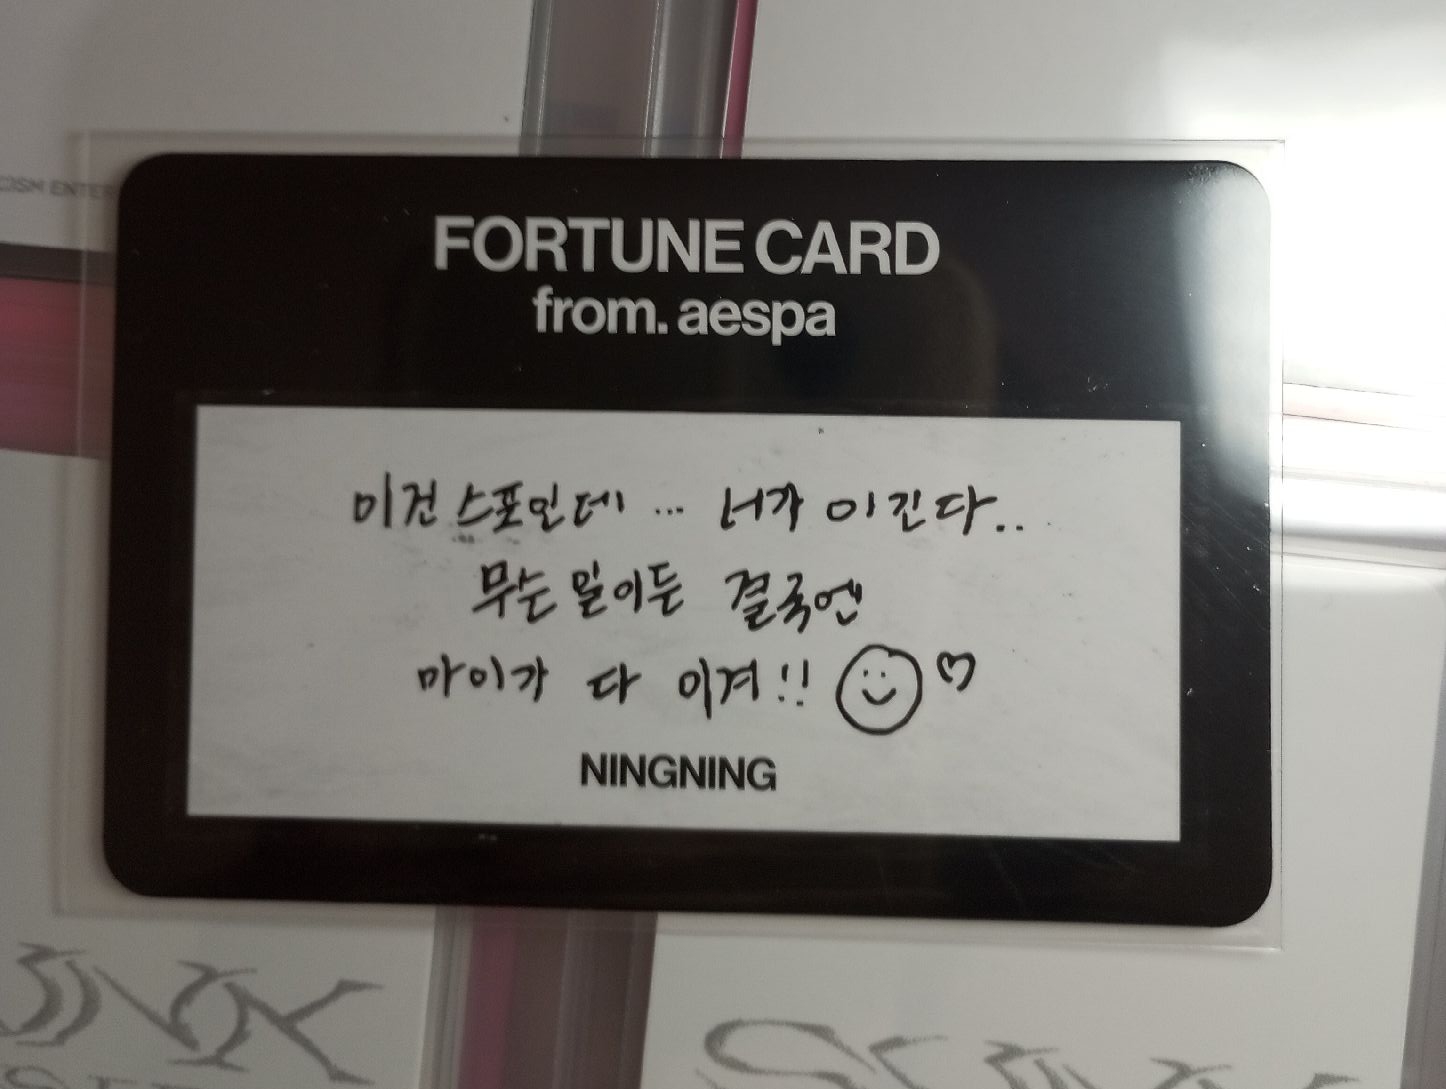 FORTUNE CARD
from. aespa
미건 스포인데 ... 너가 이긴다..
무슨 일이든 결국엔
마이가 다 이겨!!
NINGNING
SM ENTER